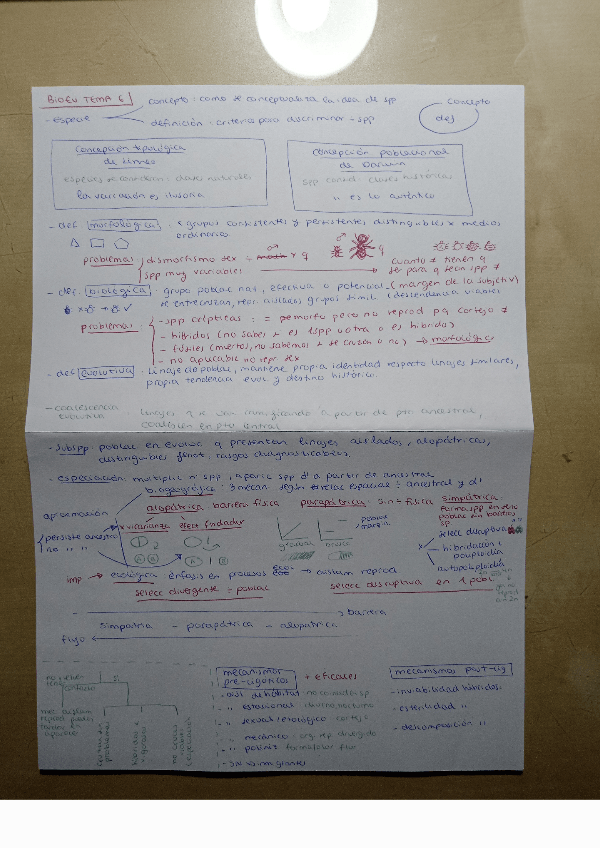 BIOEV TEMA 6
- especie
concepto: como se conceptualiza la idea de spp
definición: criterios para discriminar ≠ spp
Concepto
def
Concepción tipológica
de Linneo
especies se consideran clases naturales
la variación es ilusoria
Concepción poblacional
de Darwin
spp consid. clases históricas
" es lo auténtico
- def. morfológica: x grupos consistentes y persistentes, distinguibles x medios
ordinarios
problemas
dismorfismo sex
spp muy variables
♂ ≠ ♀
cuanto ≠ tienen q
ser para q sean spp ≠
- def. biológica: grupo poblac nat, efectiva o potencial (margen de la subjetiv)
se entrecruzan, repr. aislados grupos simil (descendencia viable)
problemas:
- spp crípticas: = pemorfo pero no reprod pq cortejo ≠
- híbridos (no sabes + es 1spp u otra o es híbrido)
- fósiles (muertos, no sabemos + se cruzan o no) → morfológico
- no aplicable no repr sex
- def evolutiva: linaje de poblac, mantiene propia identidad respecto linajes similares,
propia tendencia evol y destino histórico.
- coalescencia
evolutiva
linajes q se van ramificando a partir de ptn ancestral,
coalescen en pto central
- subspp: poblac en evoluc q presentan linajes aislados, alopátricas,
distinguibles fenot, rasgos diagnosticables,
- especiación: multiplic nº spp, aparic spp d' a partir de ancestral
aproximación
biogeográfica: 3 mecan. según relac espacial ÷ ancestral y d'
alopátrica: barrera física
parapátrica: sin + física
simpátrica
forma spp en dentro
poblac sin barreras
sp
persiste ancestral
no " "
x vicarianza
efecto fundador
gradual
brusco
poblac
margin.
selecc disruptiva
hibridación i
poliploidía
autopoliploidía
imp → ecológica énfasis en procesos
→ aislam reprod
selecc divergente ÷ poblac
selecc disruptiva en 1 pobl
→ barrera
simpatria - parapátrica - alopatrica
flujo ←
mecanismos
pre-cigóticos
+ eficaces
- aisl de hábitat: no coincidan sp
- " estacional: diurno/nocturno
- " sexual/etológico: cortejo
- " mecánico: org. rep divergido
- " poliniz: forma/color flor
- sN vs inmigrantes
mecanismos post-cig
- inviabilidad híbridos
- esterilidad "
- descomposición "